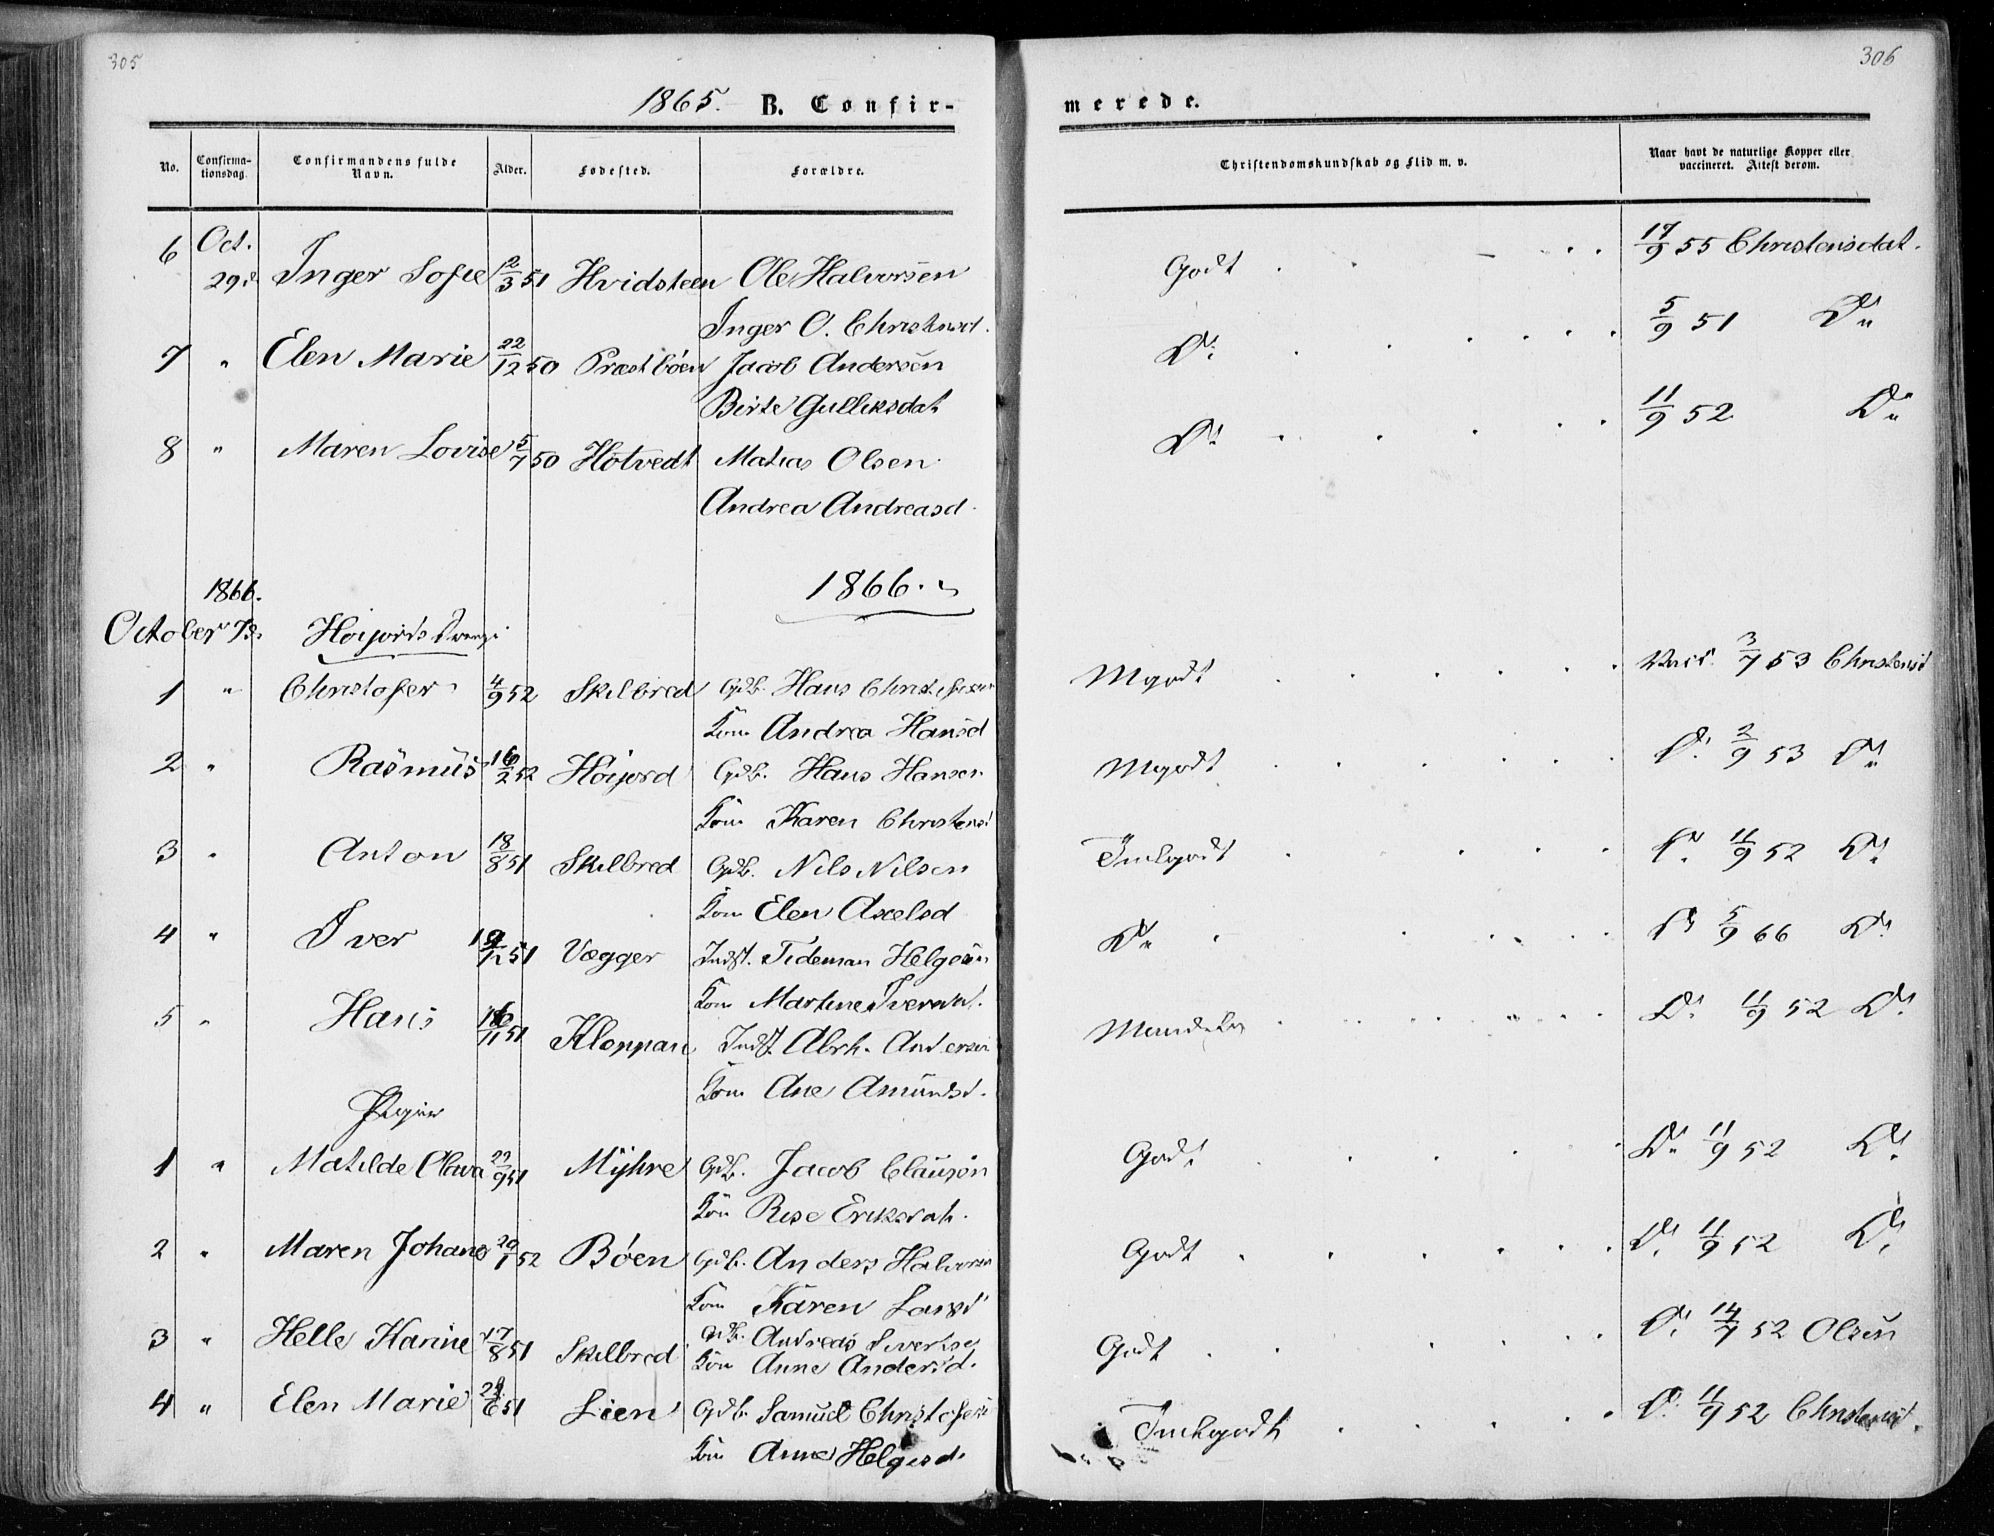 305
1865. B. Confir-
No. Confirma-tionsdag. Confirmandens fulde Navn. Alder. Fødested. Forældre.
6 Oct. 29d Inger Sofie 12/3 51 Hvidsteen Ole Halvorsen
Inger O. Christensd.
7 " Elen Marie 22/12 50 Præstbøen Jacob Andersen
Birte Gulliksdat
8 " Maren Lovise 5/7 50 Hotvedt Matias Olsen
Andrea Andreasd.
1866. 1866.
October 7d. Hoijords Drenge
1 " Christofer 4/9 52 Skilbred Gdb. Hans Christofersen
Kone Andrea Hansd
2 " Rasmus 16/2 52 Hoijord Gdb. Hans Hansen
Kone Karen Christensd
3 " Anton 18/8 51 Skilbred Gdb. Nils Nilsen
Kone Elen Axelsd
4 " Iver 51 Vægger Indst. Tideman Helgesen
Kone Martine Iversdat.
5 " Hans 16/11 51 Kloppan Indst. Abrh. Andersen
Kone Ane Amundsd.
Piger
1 " Matilde Olava 51 Myhre Gdb. Jacob Clausøn
Kone Rise Eriksdat.
2 " Maren Johane 20/1 52 Bøen Gdb. Anders Halvorsen
Kone Karen Larsd
3 " Helle Karine 17/8 51 Skilbred Gdb. Andreas Sivertsen
Kone Anne Andersd.
4 " Elen Marie 51 Lien Gdb. Samuel Christofersen
Kone Anne Helgesd.
306
merede.
Christendomskundskab og Flid m. v. Naar havt de naturlige Kopper eller vaccineret. Attest derom.
Godt 17/9 55 Christensdat.
Do 5/9 51 Do
Do 11/9 52 Do
Mgodt Vacc. 3/7 53 Christensd
Mgodt Do 2/9 53 Do
Do 11/9 52 Do
Do Do 5/9 66 Do
Do 11/9 52 Do
Godt Do 11/9 52 Do
Godt Do 11/9 52 Do
Godt Do 14/7 52 Olsen
Do 11/9 52 Christensd.